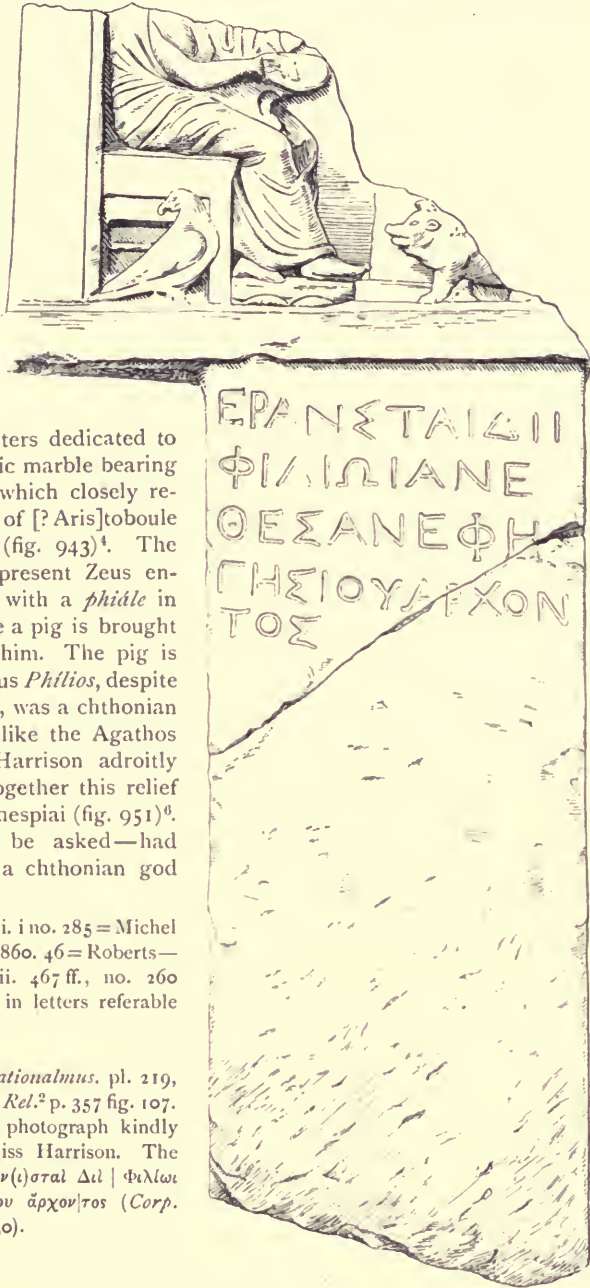 ΕΡΑΝΣΤΑΙΔΙΙ
ΦΙΛΙΩΙΑΝΕ
ΘΕΣΑΝΕΦΗ
ΓΗΣΙΟΥΑΡΧΟΝ
ΤΟΣ
ters dedicated to
ic marble bearing
which closely re-
of [? Aris]toboule
(fig. 943)⁴. The
present Zeus en-
with a phiále in
e a pig is brought
him. The pig is
us Phílios, despite
, was a chthonian
like the Agathos
Harrison adroitly
ogether this relief
nespiai (fig. 951)⁶.
be asked—had
a chthonian god
i. i no. 285 = Michel
860. 46 = Roberts—
ii. 467 ff., no. 260
in letters referable
ationalmus. pl. 219,
Rel.² p. 357 fig. 107.
photograph kindly
iss Harrison. The
ν(ι)σταὶ Διὶ | Φιλίωι
ου ἄρχον|τος (Corp.
o).